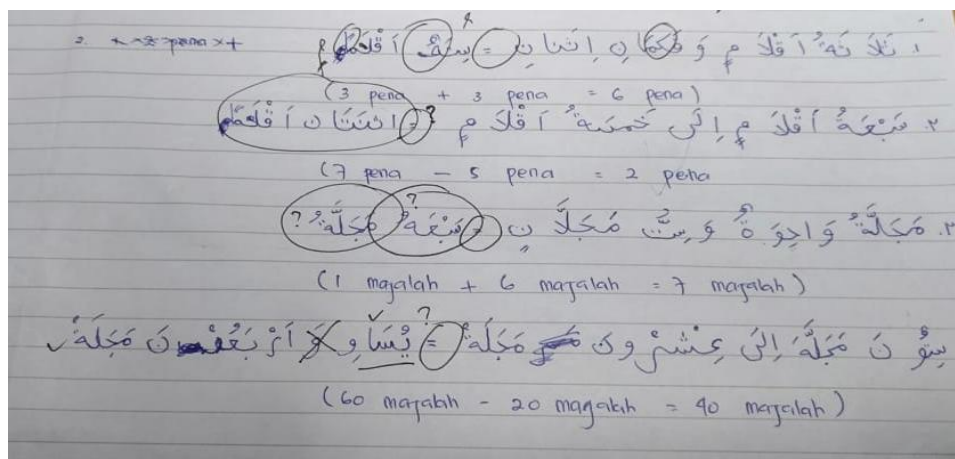 ١. ثَلَاثَةُ أَقْلَامٍ وَ قَلَمَانِ اِثْنَانِ = سِتَّةُ أَقْلَامٍ
(3 pena + 3 pena = 6 pena)
٢. سَبْعَةُ أَقْلَامٍ إِلَى خَمْسَةُ أَقْلَامٍ = ? اِثْنَتَانِ أَقْلَامٍ
(7 pena - 5 pena = 2 pena
٣. مَجَلَّةٌ وَاحِدَةٌ وَ سِتُّ مَجَلَّاتٍ = سَبْعَةُ ? مَجَلَّةٌ ?
(1 majalah + 6 majalah = 7 majalah)
سِتُّونَ مَجَلَّةً إِلَى عِشْرُونَ مَجَلَّةً = ? يُسَاوِي أَرْبَعُونَ مَجَلَّةً
(60 majalah - 20 magalah = 40 majalah)